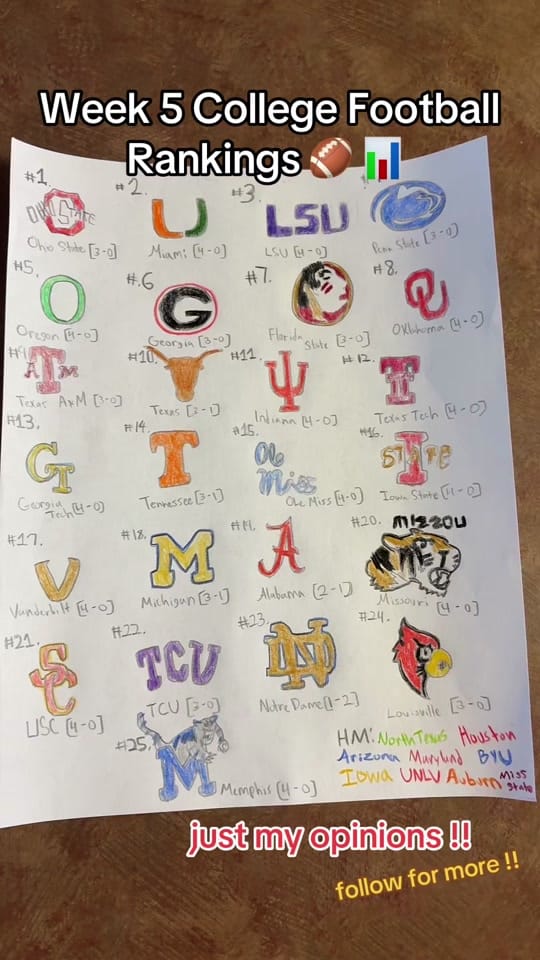 Week 5 College Football
Rankings
#1.
#2.
#3.
OHIO STATE
U
LSU
Ohio State [3-0]
Miami [4-0]
LSU [4-0]
Penn State [3-0]
#5.
#.6
#7.
#8.
O
G
OU
Oregon [4-0]
Georgia [3-0]
Florida State [3-0]
Oklahoma [4-0]
#9
#10.
#11.
#12.
ATM
TT
Texas A&M [3-0]
Texas [2-1]
Indiana [4-0]
Texas Tech [4-0]
#13.
#14.
#15.
#16.
GT
T
Ole Miss
I STATE
Georgia Tech [4-0]
Tennessee [3-1]
Ole Miss [4-0]
Iowa State [4-0]
#17.
#18.
#19.
#20.
MIZZOU
V
M
A
Vanderbilt [4-0]
Michigan [3-1]
Alabama [2-1]
Missouri [4-0]
#21.
#22.
#23.
#24.
SC
TCU
ND
USC [4-0]
TCU [3-0]
Notre Dame [1-2]
Louisville [3-0]
#25.
M
Memphis [4-0]
HM: North Texas Houston
Arizona Maryland BYU
Iowa UNLV Auburn Miss State
just my opinions !!
follow for more !!